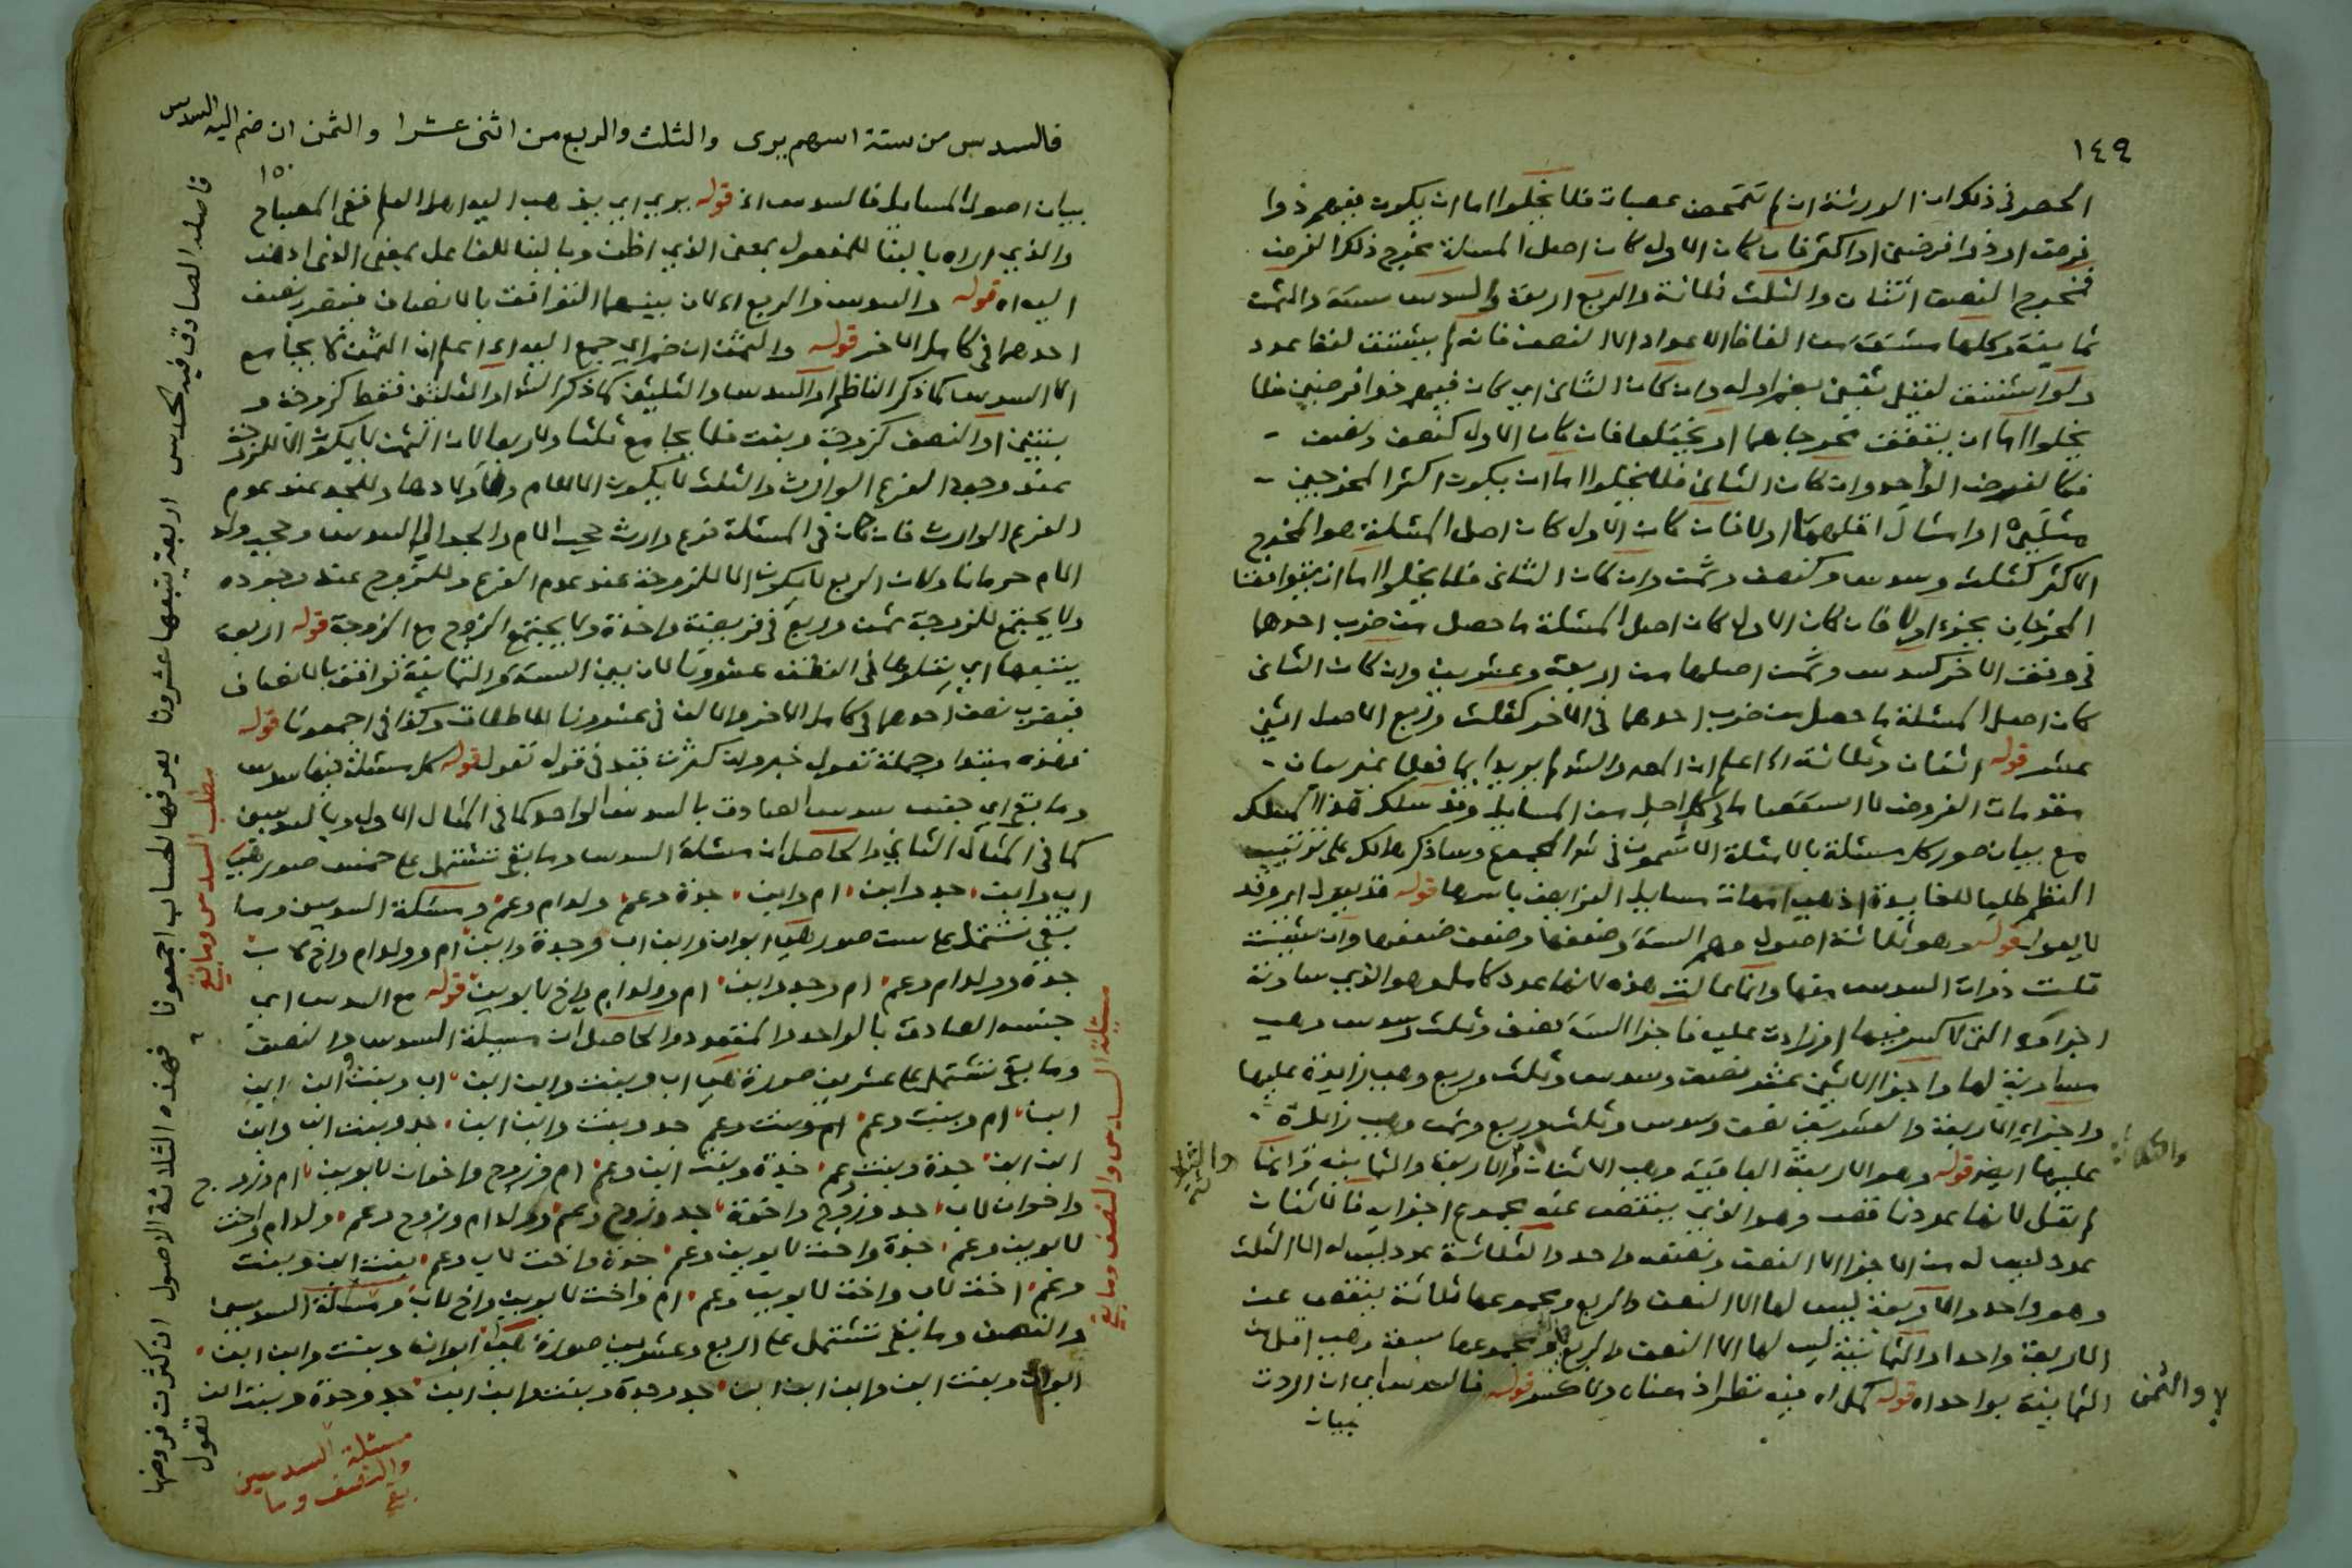 ١٤٩
الحصر في ذلك ان الورثة ان لم تتمحض عصبات فلا يخلوا اما ان يكون فيهم ذوا
فرض او ذوا فرضين او اكثر فان كان الاول كان اصل المسئلة مخرج ذلك الفرض
فمخرج النصف اثنان والثلث ثلاثة والربع اربعة والسدس ستة والثمن
ثمانية وكلها مشتقة من الفاظ الاعداد الا النصف فانه لم يشتق لفظا عدد
ولو اشتق لقيل ثنى بضم اوله وان كان الثاني اي كان فيهم ذوا فرضين فلا
يخلوا اما ان يتفق مخرجاهما او يختلفا فان كان الاول كنصف ونصف
فكالفرض الواحد وان كان الثاني فلا يخلوا اما ان يكون اكثر المخرجين
مثلي اقلهما اولا فان كان الاول كان اصل المسئلة هو المخرج
الاكثر كثلث وسدس وكنصف وثمن وان كان الثاني فلا يخلوا اما ان يتوافقا
المخرجان بجزء اولا فان كان الاول كان اصل المسئلة ما حصل من ضرب احدهما
في وفق الاخر كسدس وثمن اصلها من اربعة وعشرين وان كان الثاني
كان اصل المسئلة ما حصل من ضرب احدهما في الاخر كثلث وربع الاصل اثني
عشر قوله اثنان وثلاثة اه اعلم ان المص والش لم يريدا بما فعلا غير بيان
مقدمات الفروض لا استقصا ما في كل اصل من المسايل وقد سلك هذا المسلك
مع بيان صور كل مسئلة بالامثلة الاشموني في شرح المجموع وساذكر ذلك على ترتيب
النظم طلبا للفايدة اذ هي امهات مسايل الفرايض باسرها قوله قد يعول اي وقد
لا يعول قوله وهو ثلاثة اصول وهي الستة وضعفها وضعف ضعفها وان شئت
قلت ذوات السدس منها وانما عالت هذه لانها عدد كامل وهو الذي ساوته
اجزاؤه التي لا كسر فيها او زادت عليه فاجزا الستة نصف وثلث وسدس وهي
مساوية لها واجزا الاثني عشر نصف وسدس وثلث وربع وهي زايدة عليها
واجزاء الاربعة والعشرين نصف وسدس وثلث وربع وثمن وهي زائدة
عليها ايض قوله وهو الاربعة الباقية وهي الاثنان والاربعة والثمانية وانما
لم تعل لانها عدد ناقص وهو الذي ينقص عنه مجموع اجزايه فالاثنان
عدد ليس له من الاجزا الا النصف ونصفه واحد والثلاثة عدد ليس له الا الثلث
وهو واحد والاربعة ليس لها الا النصف والربع ومجموعها ثلاثة ينقص عن
الاربعة واحدا والثمانية ليس لها الا النصف والربع ومجموعها سبعة وهي اقل من
الثمانية بواحد اه قوله كمل اه فيه نظر اذ معناه قوله فالسدس اي ان اردت
بيان
والثلاثة
والثمن
فالسدس من ستة اسهم يرى والثلث والربع من اثنى عشرا والثمن ان ضم اليه السدس
١٥٠
بيان اصول المسايل فالسدس اه قوله يرى اي يذهب اليه اهل العلم ففي المصباح
والذي اراه بالبنا للمفعول بمعنى الذي اظن وبالبنا للفاعل بمعنى الذي اذهب
اليه اه قوله والسدس والربع اه لان بينهما التوافق بالانصاف فيضرب نصف
احدهما في كامل الاخر قوله والثمن ان ضم اي جمع اليه اه اعلم ان الثمن لا يجامع
الا السدس كما ذكر الناظم او السدس والثلثين كما ذكر الش او الثلثين فقط كزوجة و
بنتين او النصف كزوجة وبنت فلا يجامع ثلثا ولا ربعا لان الثمن لا يكون الا للزوجة
عند وجود الفرع الوارث والثلث لا يكون الا للام واولادها وللجد عند عدم
الفرع الوارث فان كان في المسئلة فرع وارث حجب الام والجد الى السدس وحجب ولد
الام حرمانا ولان الربع لا يكون الا للزوجة عند عدم الفرع وللزوج عند وجوده
ولا يجتمع للزوجة ثمن وربع في فريضة واحدة ولا يجتمع الزوج مع الزوجة قوله اربعة
يتبعها اي يتلوها في النطق عشرونا لان بين الستة والثمانية توافق بالانصاف
فيضرب نصف احدهما في كامل الاخر والالف في عشرونا للاطلاق وكذا في اجمعونا قوله
فهذه مبتدا وجملة تعول خبر وان كثرت قيد في قوله تعول قوله كل مسئلة فيها سدس
وما بقي اي جنس سدس الصادق بالسدس الواحد كما في المثال الاول وبالسدسين
كما في المثال الثاني والحاصل ان مسئلة السدس وما بقي تشتمل على خمس صور هي
اب وابن، جد وابن، ام وابن، جدة وعم، ولد ام وعم، ومسئلة السدسين وما
بقي تشتمل على ست صور هي ابوان وابن اب وجدة وابن ام وولد ام واخ لاب
جدة وولد ام وعم، ام وجد وابن، ام وولد ام واخ لابوين، قوله مع السدس اي
جنسه الصادق بالواحد والمتعدد والحاصل ان مسئلة السدس والنصف
وما بقي تشتمل على عشرين صورة هي اب وبنت وابن ابن، اب وبنت ابن وابن
ابن، ام وبنت وعم، ام وبنت وعم جد وبنت وابن ابن، جد وبنت ابن وابن
ابن ابن، جدة وبنت وعم، جدة وبنت ابن وعم، ام وزوج واخوان لابوين، ام وزوج
واخوان لاب، جد وزوج واخوة، جد وزوج وعم، وولد ام وزوج وعم، ولد ام واخت
لابوين وعم، جدة واخت لابوين وعم، جدة واخت لاب وعم، بنت ابن وبنت
وعم، اخت لاب واخت لابوين وعم، ام واخت لابوين واخ لاب، ومسئلة السدسين
والنصف وما بقي تشتمل على اربع وعشرين صورة هي ابوان وبنت وابن ابن،
ابوان وبنت ابن وابن ابن ابن، جد وجدة وبنت وابن ابن، جد وجدة وبنت ابن
فاصله الصادق فيه الحدس اربعة يتبعها عشرونا يعرفها الحساب اجمعونا فهذه الثلاثة الاصول ان كثرت فروضها تعول
مطلب السدس وما بقي
مسئلة السدس والنصف وما بقي
مسئلة السدسين
والنصف وما
بقي